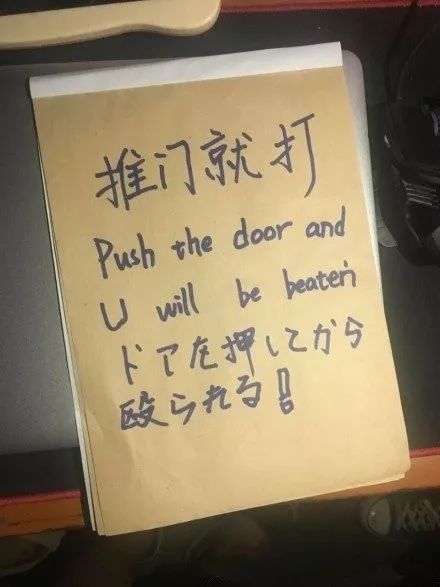 推门就打
Push the door and
U will be beaten
ドアを押してから
殴られる！